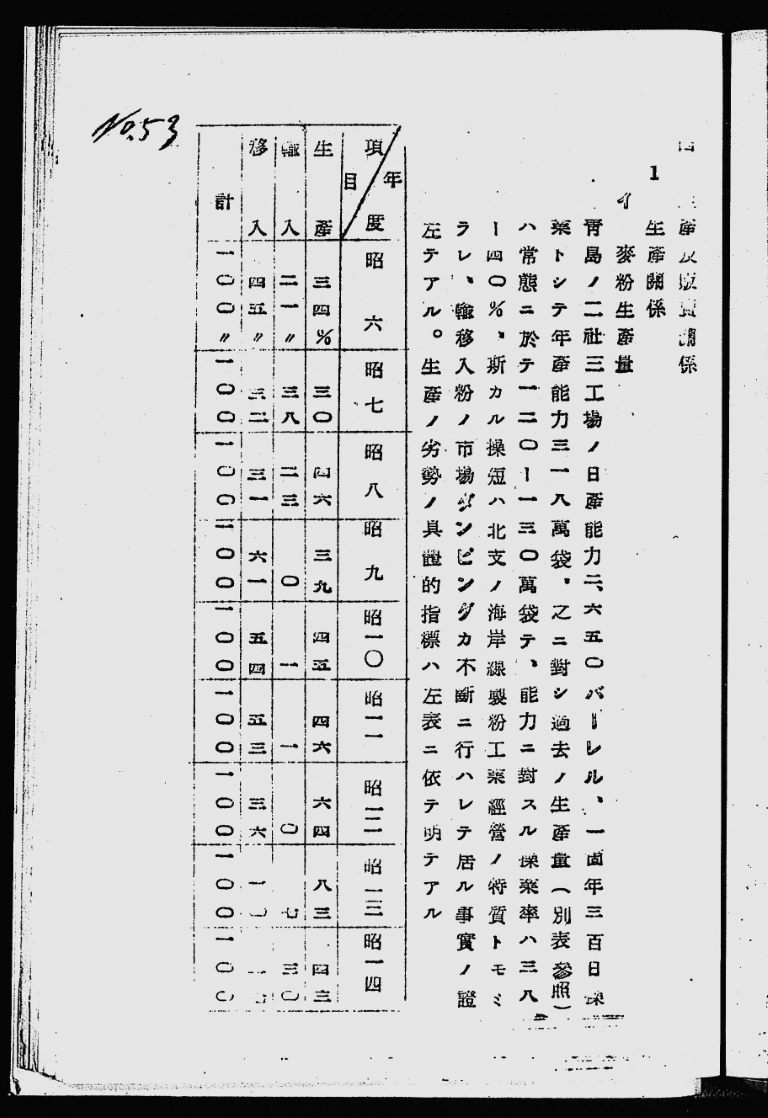 產及販賣關係
1 生產關係
イ 麥粉生產量
青島ノ二社三工場ノ日產能力二、六五〇バーレル、一箇年三百日操
業トシテ年產能力三一八萬袋、之ニ對シ過去ノ生產量(別表參照)
ハ常態ニ於テ一二〇ー一三〇萬袋テ、能力ニ對スル操業率ハ三八
ー四〇%、斯カル操短ハ北支ノ海岸線製粉工業經營ノ特質トモミ
ラレ、輸移入粉ノ市場ダンピングカ不斷ニ行ハレテ居ル事實ノ證
左テアル。生產ノ劣勢ノ具體的指標ハ左表ニ依テ明テアル
項目/年度 昭六 昭七 昭八 昭九 昭一〇 昭一一 昭一二 昭一三 昭一四
生產 三四% 三〇 四六 三九 四五 四六 六四 八三 四三
輸入 二一〃 三八 二三 〇 一 一 〇 七 三〇
移入 四五〃 三二 三一 六一 五四 五三 三六 一〇
計 一〇〇〃 一〇〇 一〇〇 一〇〇 一〇〇 一〇〇 一〇〇 一〇〇 一〇〇
No.53